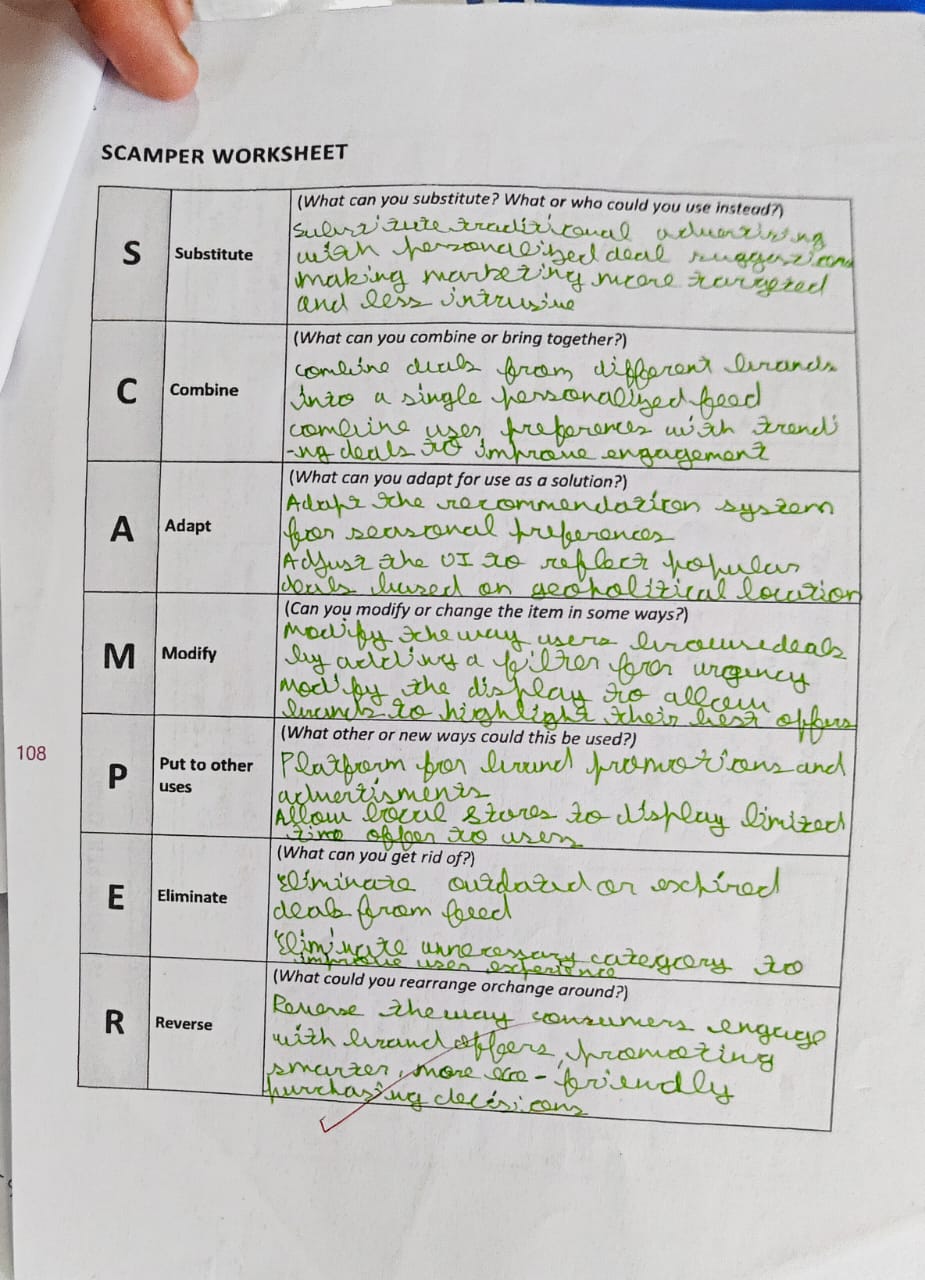 SCAMPER WORKSHEET
S
Substitute
(What can you substitute? What or who could you use instead?)
Substitute traditional advertising
with personalized deal suggestions
making marketing more targeted
and less intrusive
C
Combine
(What can you combine or bring together?)
combine deals from different brands
into a single personalized feed
combine user preferences with trendi
-ng deals to improve engagement
A
Adapt
(What can you adapt for use as a solution?)
Adapt the recommendation system
for seasonal preferences
Adjust the UI to reflect popular
deals based on geopolitical location
M
Modify
(Can you modify or change the item in some ways?)
Modify the way users browse deals
by adding a filter for urgency
Modify the display to allow
brands to highlight their best offers
108
P
Put to other
uses
(What other or new ways could this be used?)
Platform for brand promotions and
advertisments
Allow local stores to display limited
time offer to users
E
Eliminate
(What can you get rid of?)
Eliminate outdated or expired
deals from feed
Eliminate unnecessary category to
improve user experience
R
Reverse
(What could you rearrange orchange around?)
Reverse the way consumers engage
with brand offers, promoting
smarter, more eco-friendly
purchasing decisions